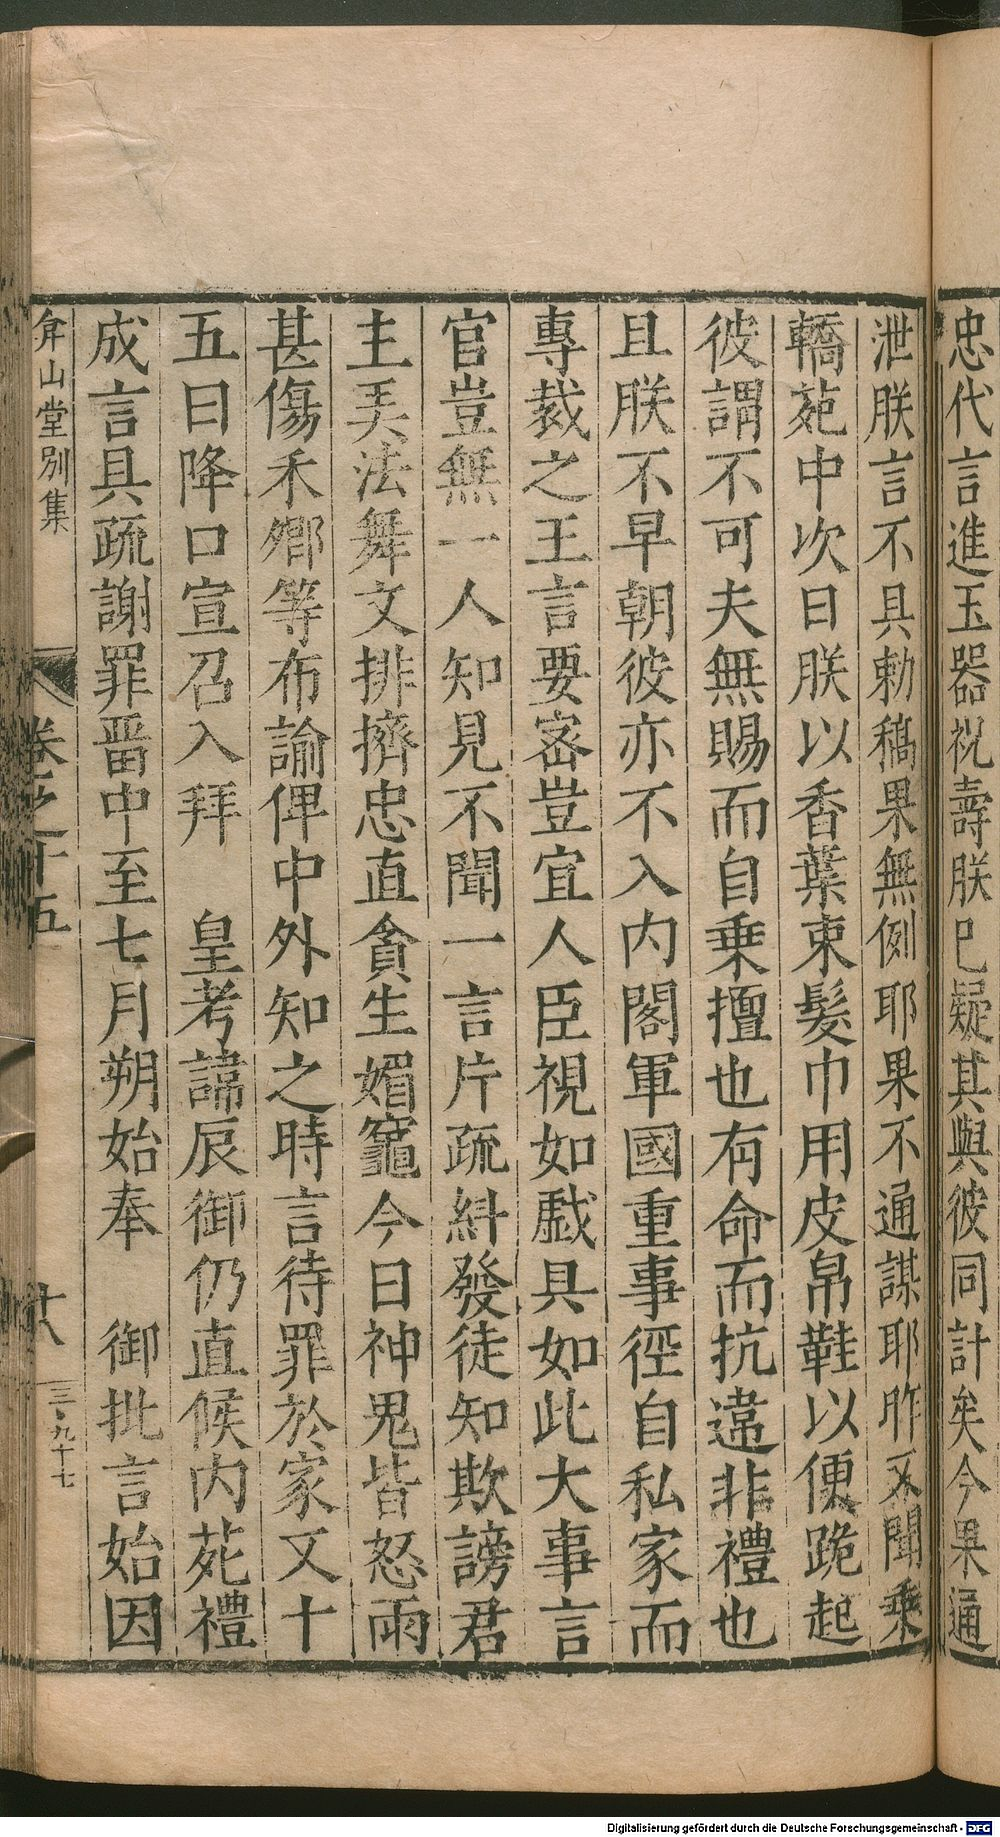 忠代言進玉器祝壽朕已疑其與彼同計矣今果通
泄朕言不具勅稿果無例耶果不通謀耶昨又聞乗
轎苑中次日朕以香葉束髮巾用皮帛鞋以便跪起
彼謂不可夫無賜而自乗擅也有命而抗違非禮也
且朕不早朝彼亦不入内閣軍國重事徑自私家而
專裁之王言要宻豈宜人臣視如戲具如此大事言
官豈無一人知見不聞一言片疏紏發徒知欺謗君
主美法舞文排擠忠直貪生媚竈今日神鬼皆怒雨
甚傷禾卿等布諭俾中外知之時言待罪於家又十
五日降口宣召入拜　皇考諱辰御仍直候内苑禮
成言具疏謝罪畱中至七月朔始奉　御批言始因
弇山堂別集
卷之十五
十八
三九十七
Digitalisierung gefördert durch die Deutsche Forschungsgemeinschaft - DFG